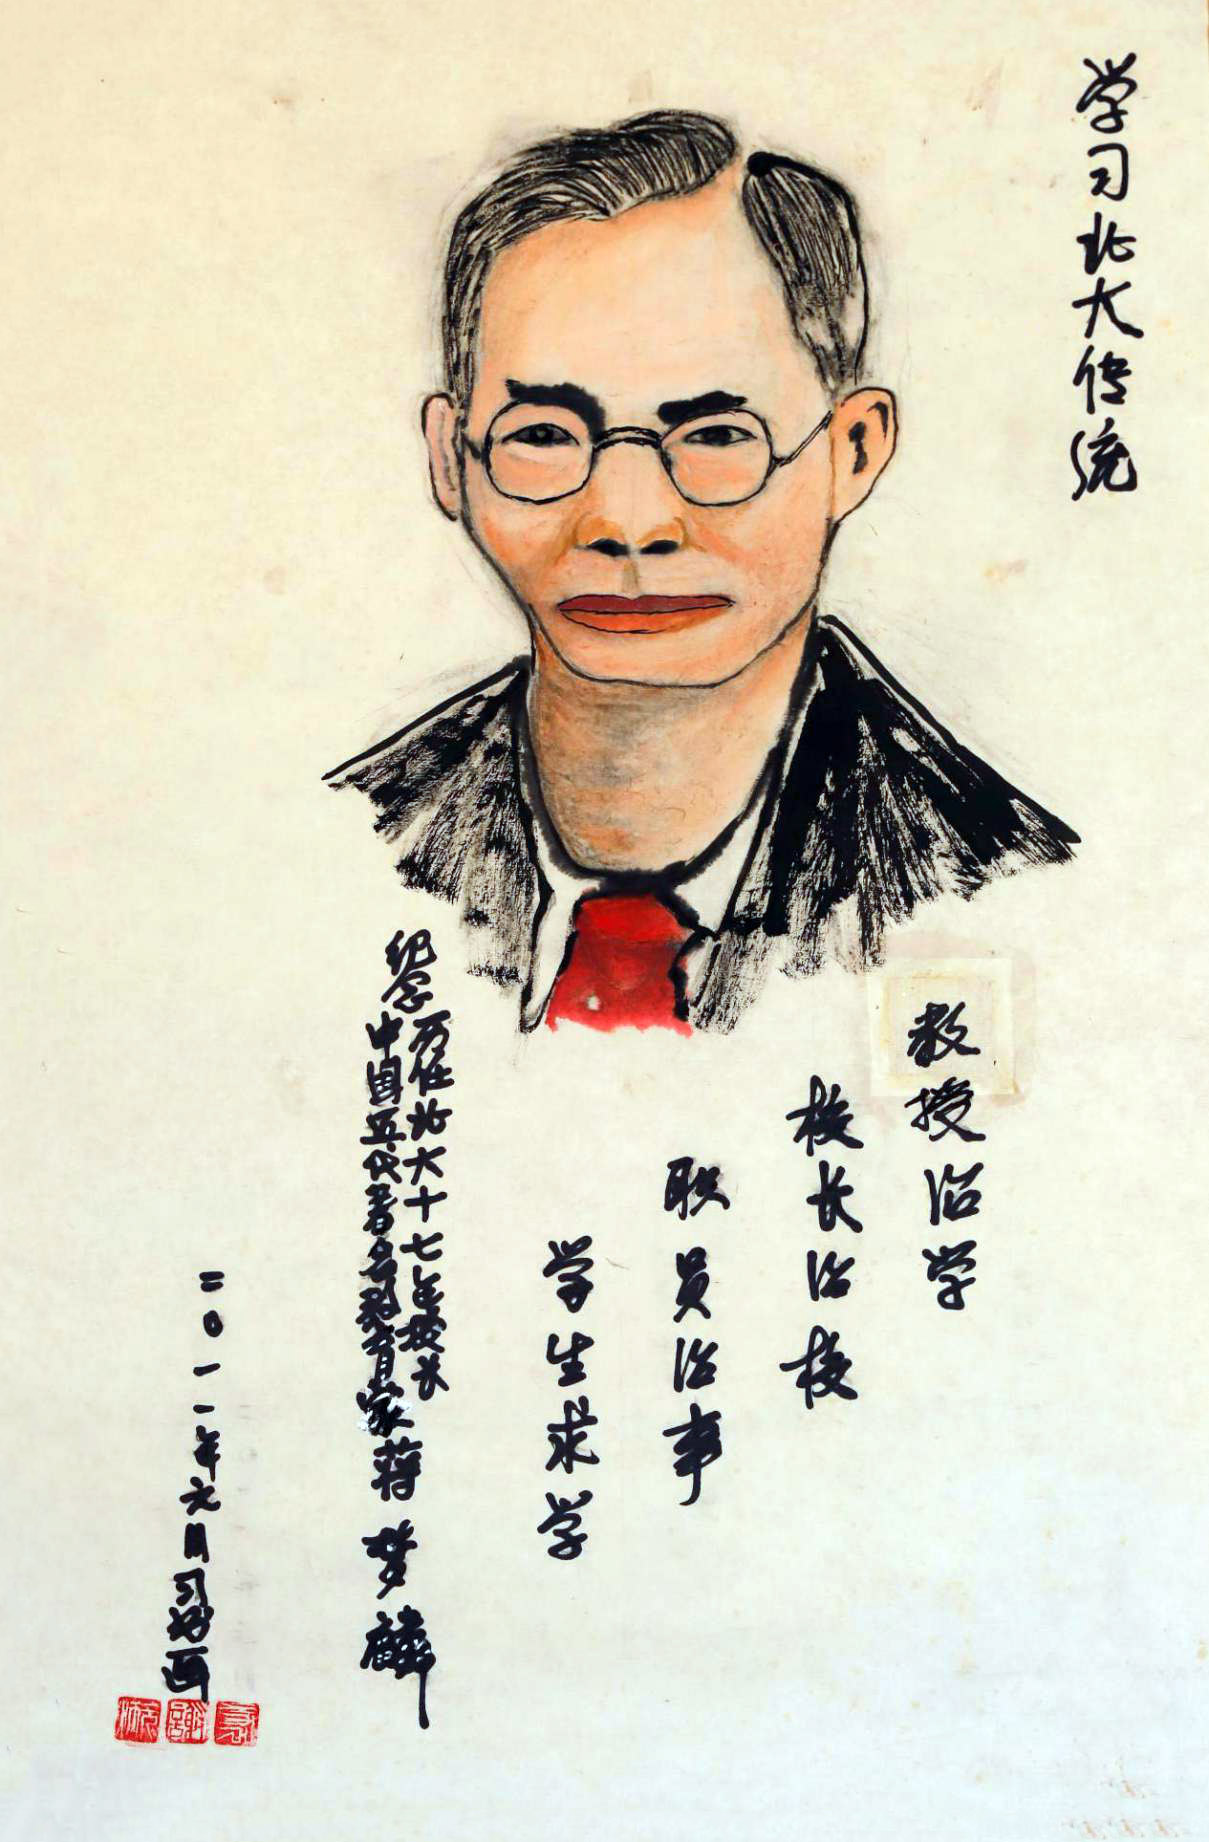 学习北大传统
教授治学
校长治校
职员治事
学生求学
纪念历任北大十七年校长
中国五代著名教育家蒋梦麟
二0一一年元月